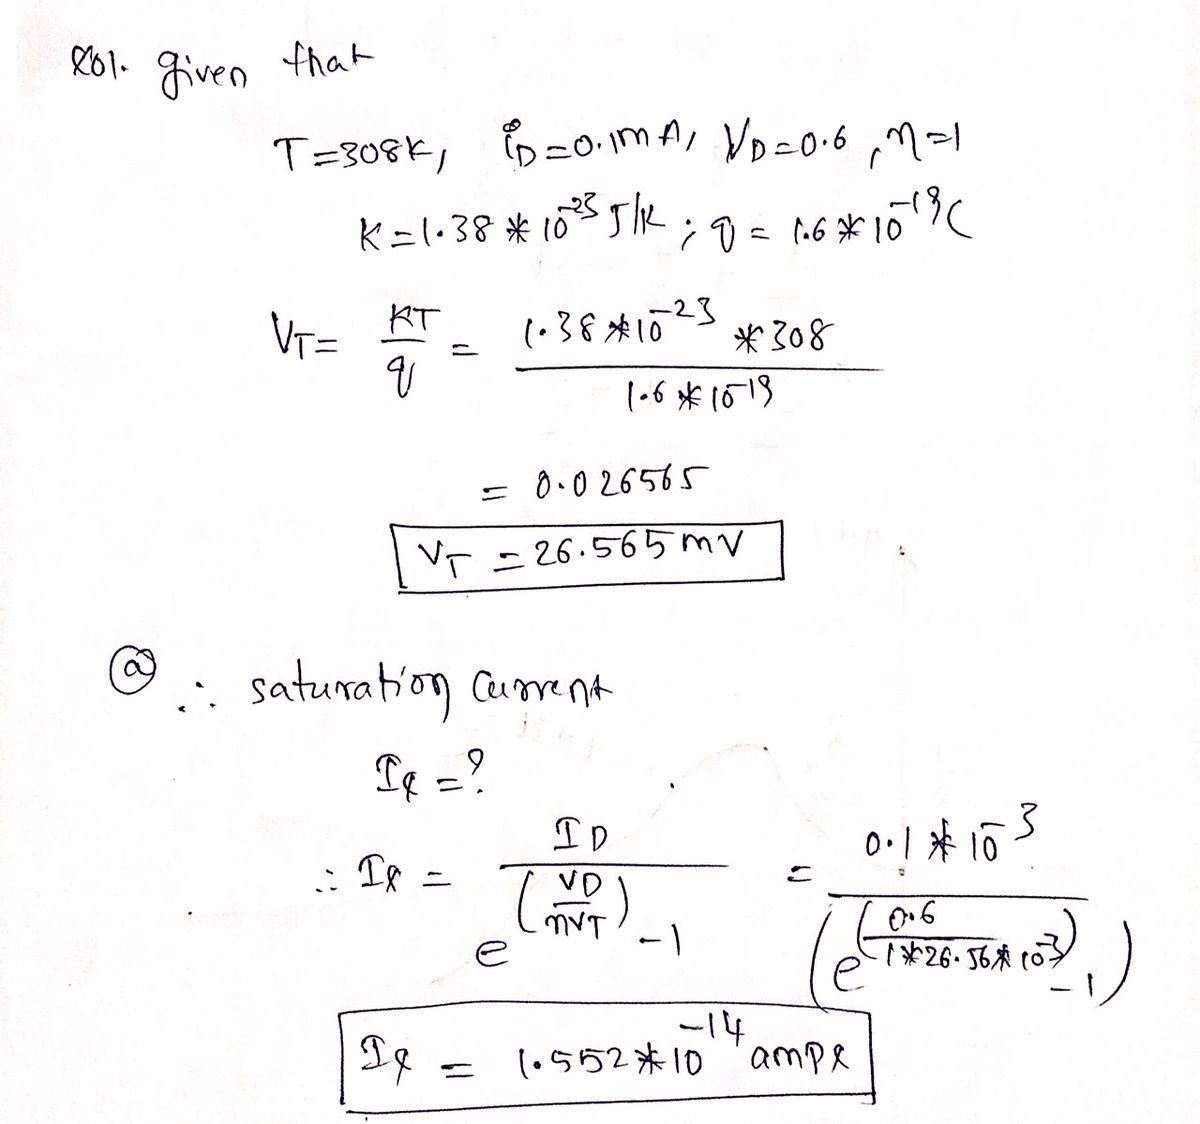 Sol. given that
T=308K, iD=0.1mA, VD=0.6, η=1
K=1.38*10^-23 J/K ; q = 1.6*10^-19 C
VT= KT/q = (1.38*10^-23 *308)/(1.6*10^-19)
= 0.026565
VT = 26.565 mV
(a) ∴ saturation current
Is =?
∴ Is = ID/(e^(VD/ηVT) -1) = (0.1*10^-3)/(e^(0.6/(1*26.56*10^-3)) -1)
Is = 1.552*10^-14 amps